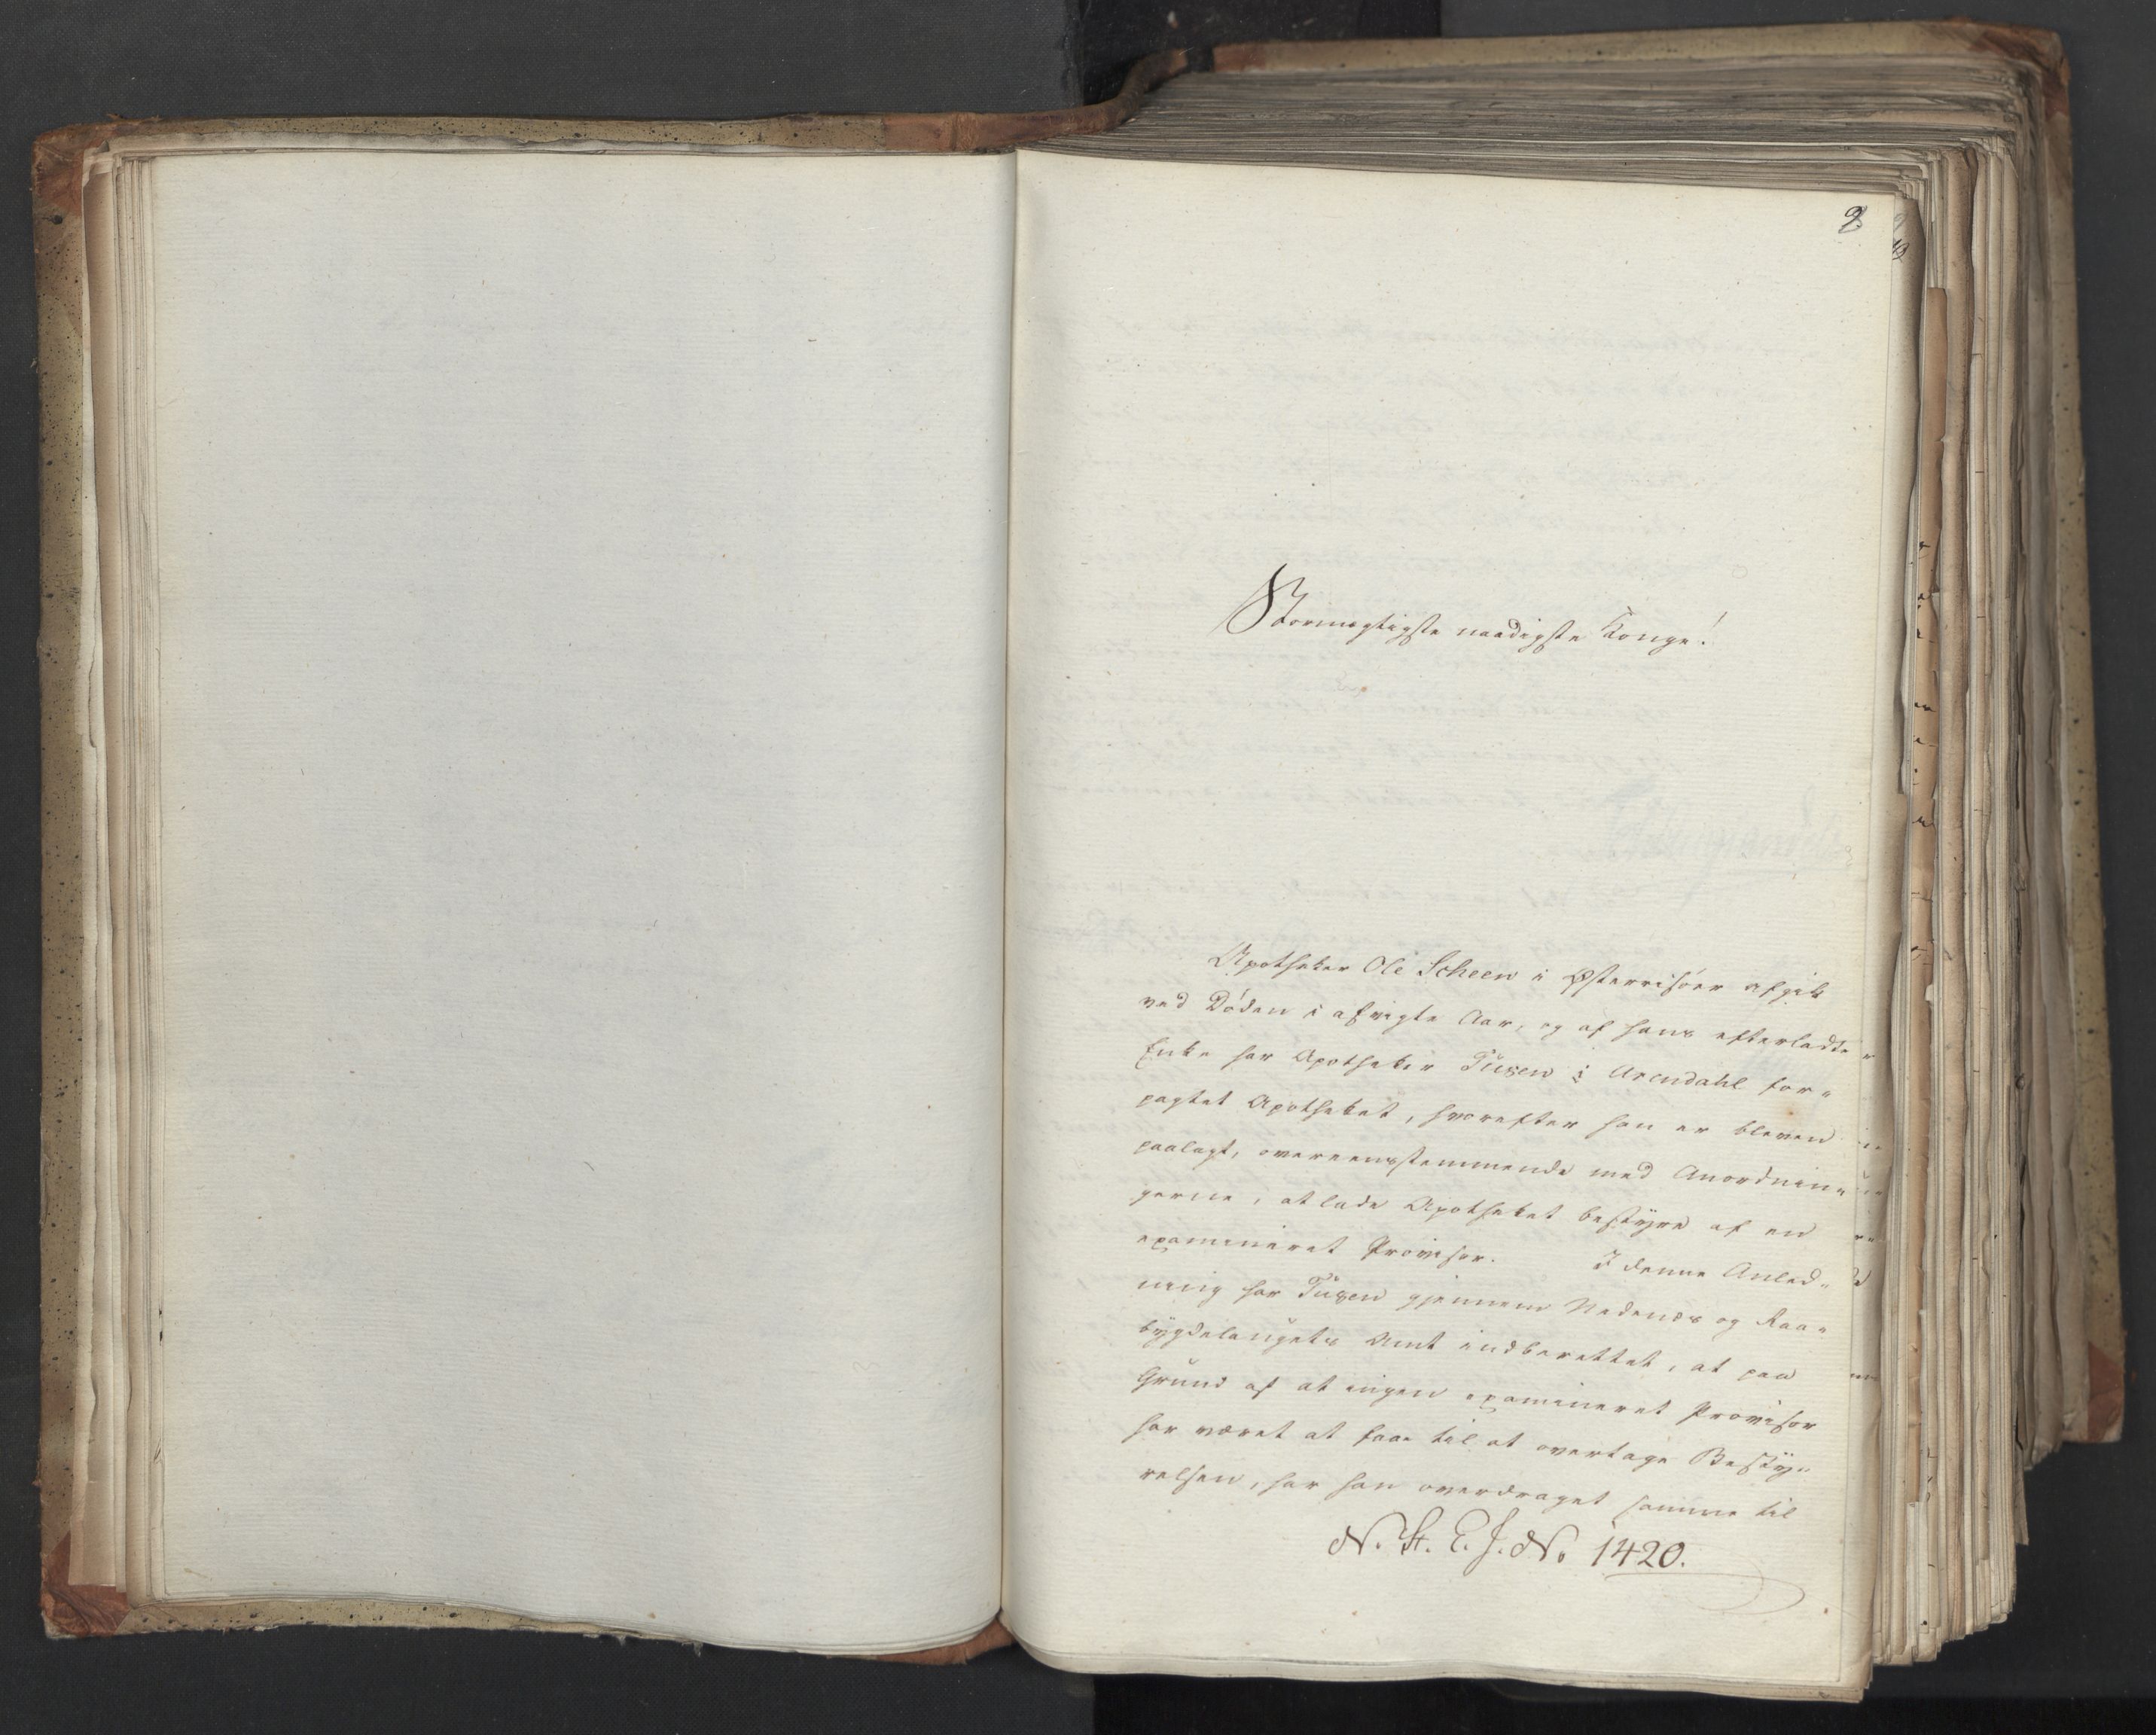 9
Stormægtigste naadigste Konge!
Apotheker Ole Scheen i Østerrisöer afgik
ved Döden i afvigte Aar, og af hans efterladte
Enke har Apotheker Tüxen i Arendahl for„
pagtet Apotheket, hvorefter han er bleven
paalagt, overeensstemmende med Anordnin„
gerne, at lade Apotheket bestyre af en
examineret Provisor. I denne Anled„
ning har Tüxen gjennem Nedenæs og Raa„
bygdelaugets Amt indberettet, at paa
Grund af at ingen examineret Provisor
har været at faae til at overtage Besty„
relsen, har han overdraget samme til
N. St. E. J. No 1420.